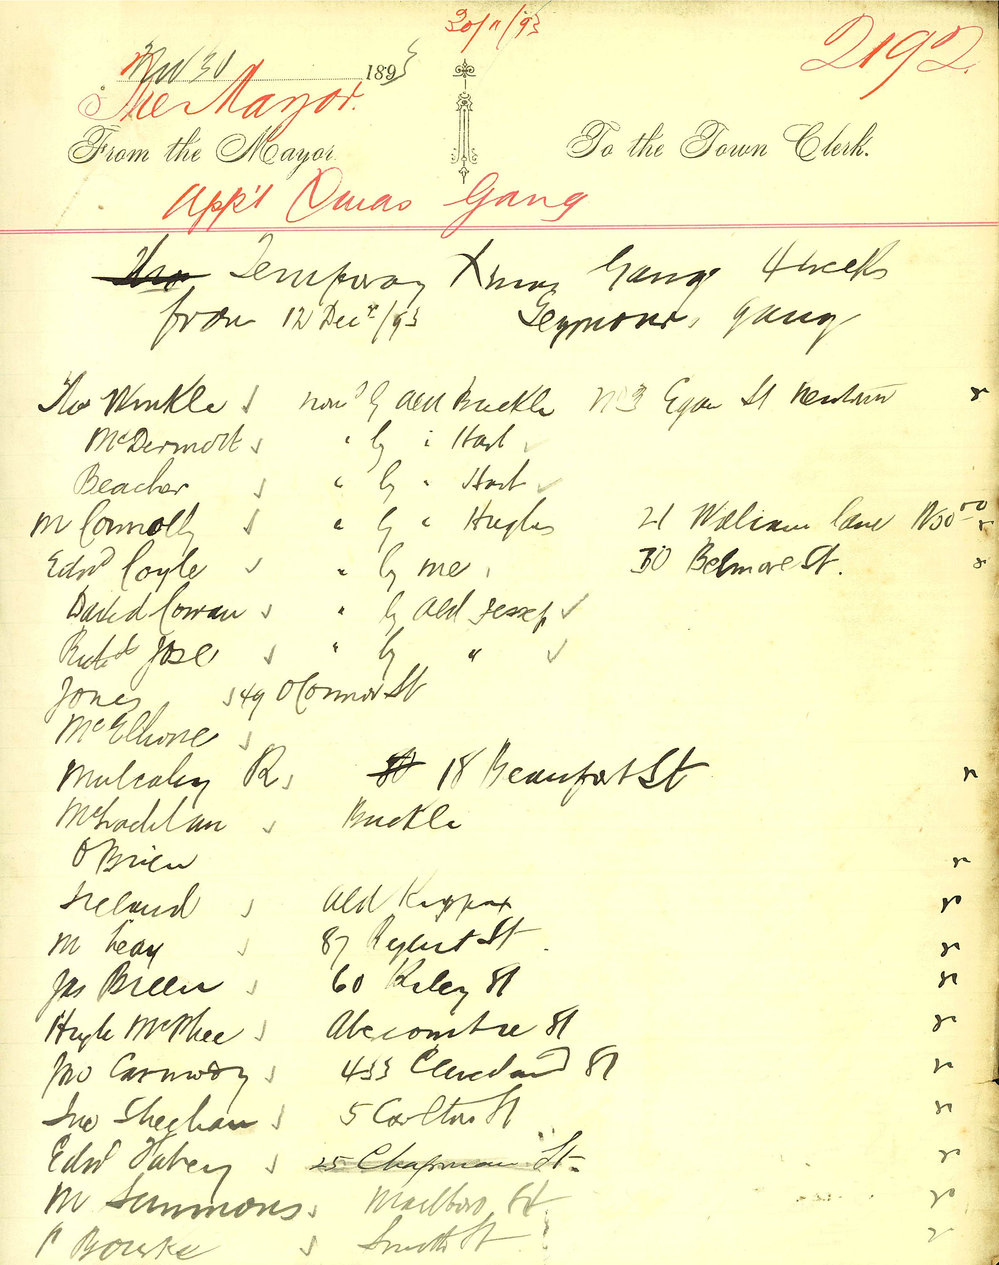 30/11/93
2192.
Nov 30 1893
The Mayor.
From the Mayor To the Town Clerk.
App't Xmas Gang
Temporary Xmas Gang 4 weeks
from 12 Decr/93 Seymour's gang
Thos Winkle nomd by Ald Buckle No 3 Egan St Newtown
McDermott " by " Hart
Beacher " by " Hart
M Connolly " by " Hughes 21 William Lane Woo-oo
Edwd Coyle " by me 30 Belmore St.
David Cowan " by Ald Jessep
Richd Jose " by "
Jones 49 O'Connor St
McElhone
Mulcahy R 18 Beaufort St
McLachlan Buckle
O'Brien
Ireland Ald Kippax
M Leay 87 St
Jas Breen 60 Riley St
Hugh McPhee Abecombre St
Jno Conway 433 Cleveland St
Jno Sheehan 5 Carlton St
Edwd 25 Chapman St.
M Simmons Marlboro St
P Bourke Smith St